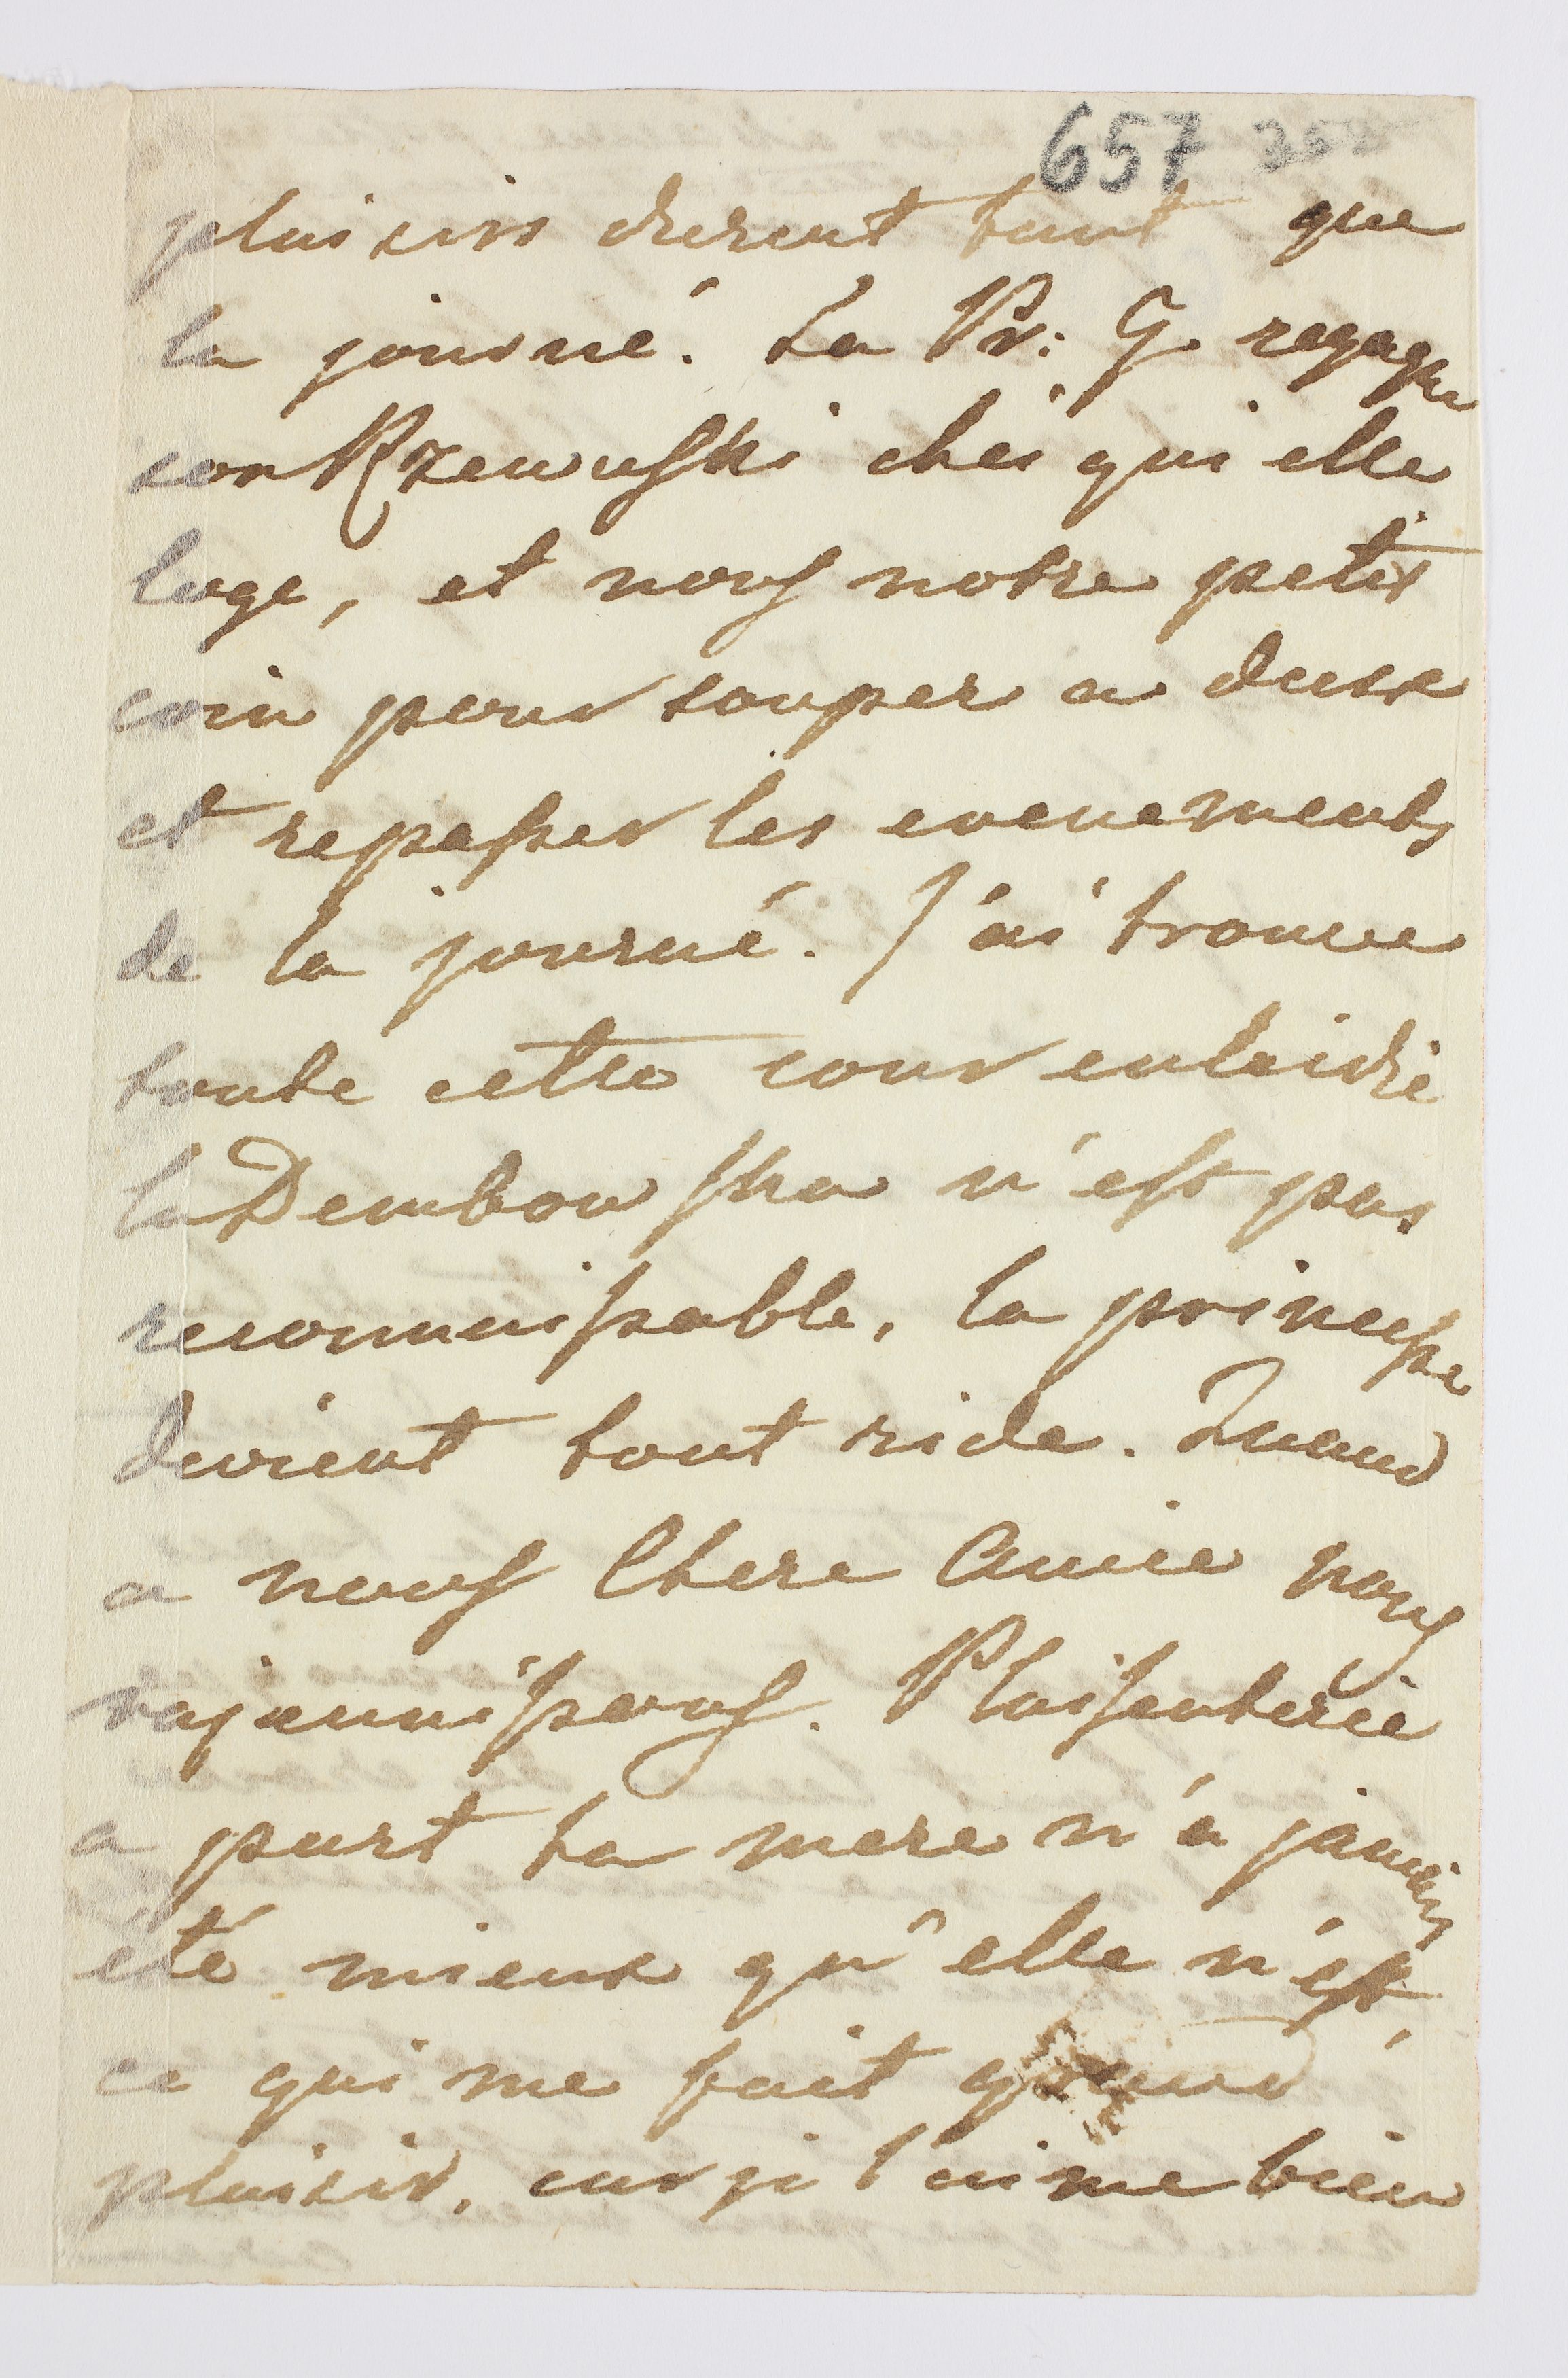 657
plaisirs durent tant que
la journé. La Pr: G. regagne
son Rzewuski chéi qui elle
loge, et nous notre petit
coin pour souper a deux
et repasser les evenements
de la journé. J'ai trouve
toute cette cour enlaidie
la Dembowska n'est pas
reconnaissable, la princesse
devient tout ride. Quand
a nous Chere Amie nous
rajeunissons. Plaisenterie
a part ta mere n'a jamais
été mieux qu'elle n'est,
ce qui me fait grand
plaisir, car je l'aime bien